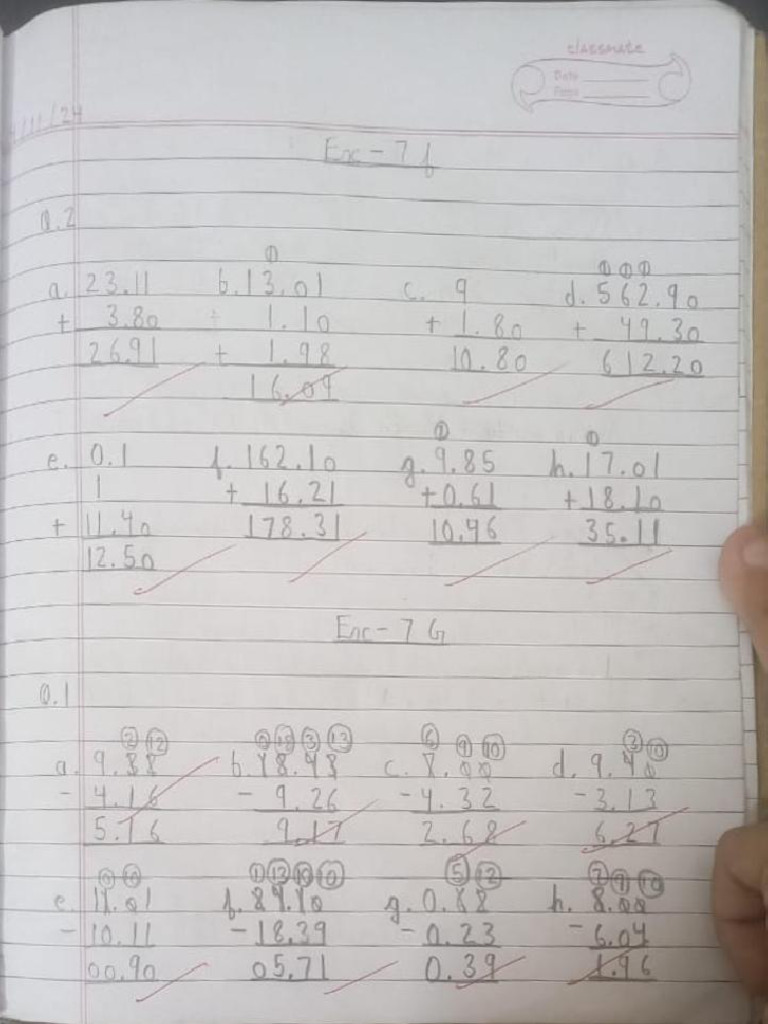 classmate
Date
Page
/11/24
Exc - 7 f
Q.2
① ① ① ①
a. 23.11 b. 13.01 c. 9 d. 562.90
+ 3.80 + 1.10 + 1.80 + 49.30
26.91 + 1.98 10.80 612.20
16.09
① ①
e. 0.1 f. 162.10 g. 9.85 h. 17.01
1 + 16.21 +0.61 +18.10
+ 11.40 178.31 10.46 35.11
12.50
Exc - 7 G
Q.1
② ⑫ ③ ⑬ ⑥ ⑨ ⑩ ③ ⑩
a. 9. b. c. d. 9.
- 4.16 - 9.26 - 4.32 - 3.13
5.16 9.17 2.68 6.27
⑤ ⑫ ⑦ ⑨ ⑩
e. f. g. 0. h. 8.00
- 10.11 - 18.39 - 0.23 - 6.04
00.90 05.71 0.39 1.96